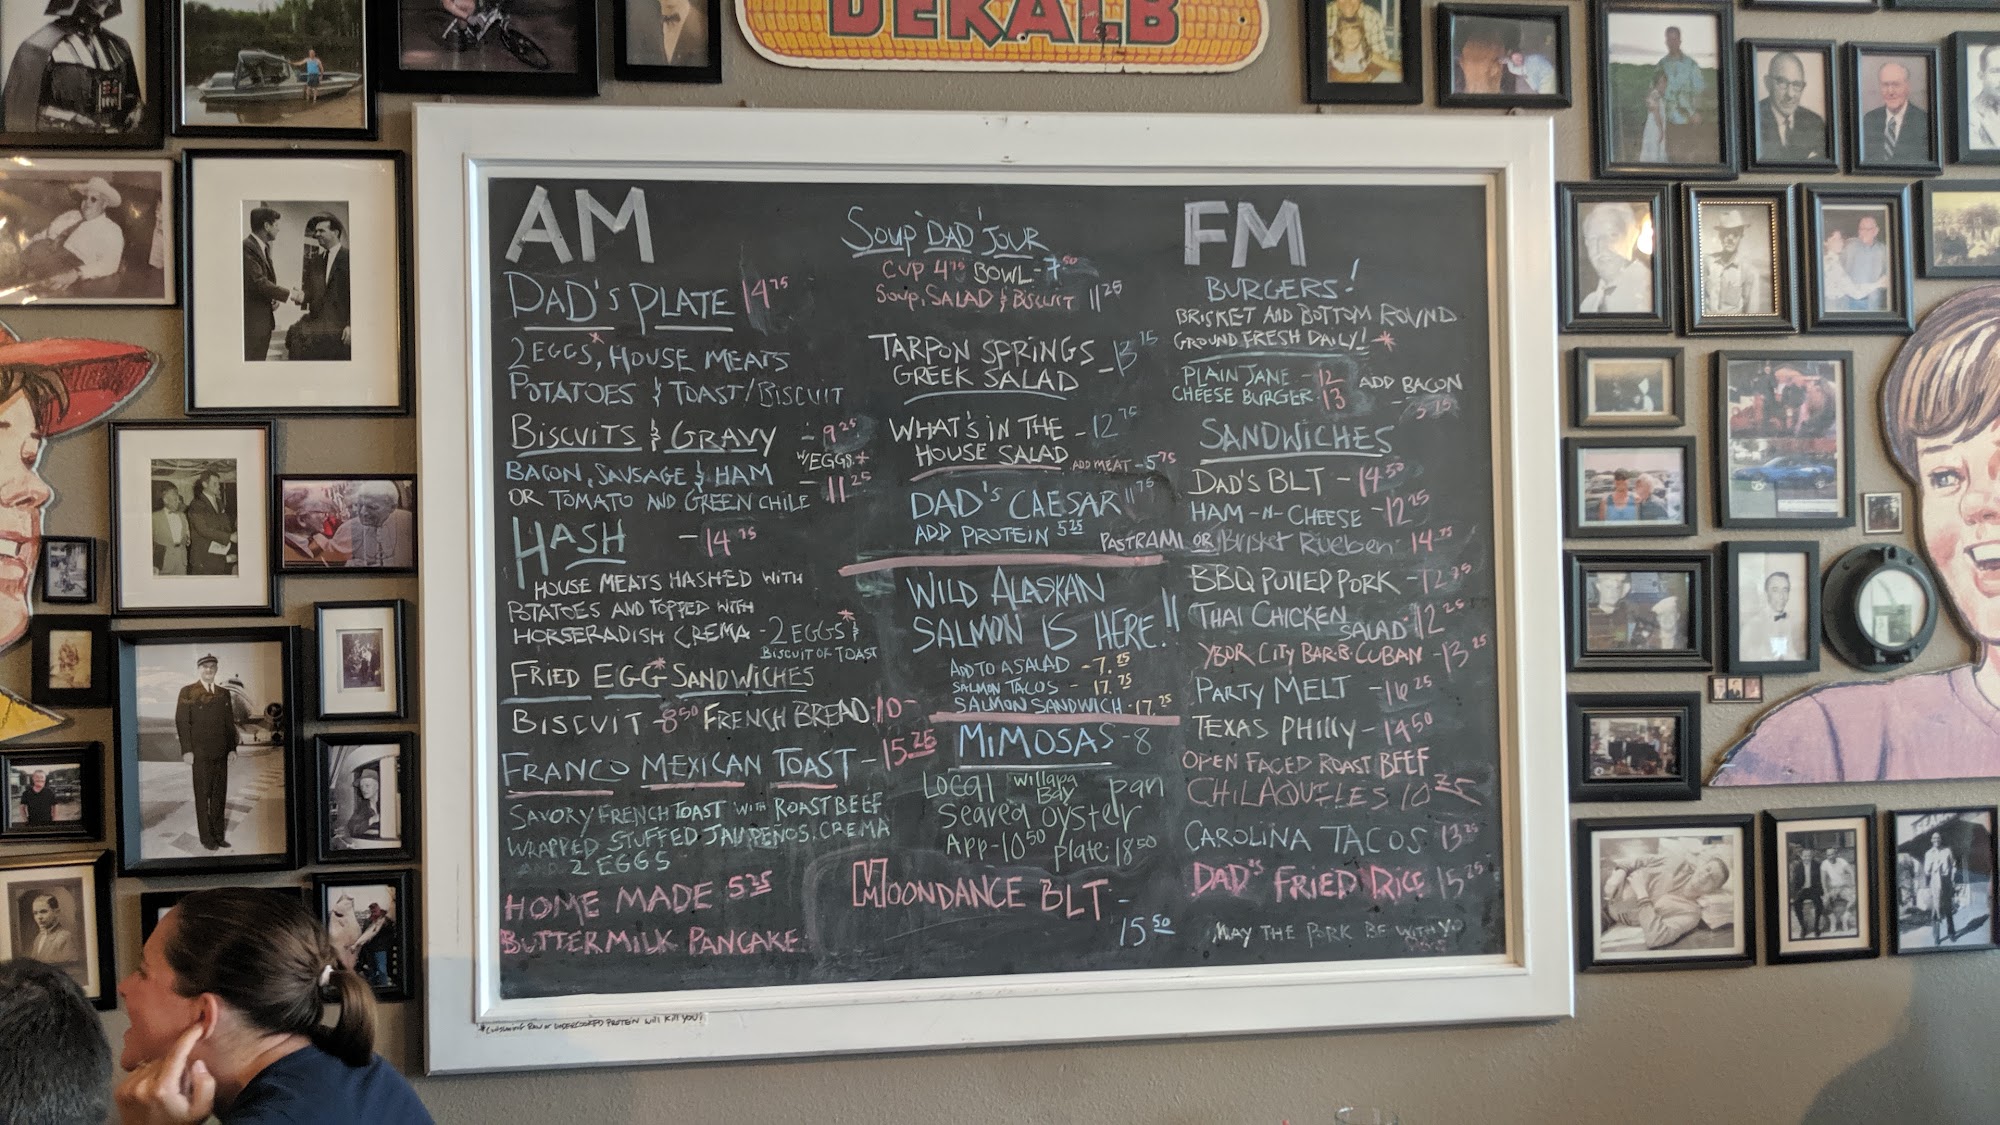 DEKALB
AM
DAD'S PLATE 14 75
2 EGGS,* HOUSE MEATS
POTATOES & TOAST/BISCUIT
BISCUITS & GRAVY - 9 25
W/EGGS *
BACON, SAUSAGE & HAM - 11 25
OR TOMATO AND GREEN CHILE
HASH - 14 75
HOUSE MEATS HASHED WITH
POTATOES AND TOPPED WITH
HORSERADISH CREMA - 2 EGGS* &
BISCUIT OR TOAST
FRIED EGG* SANDWICHES
BISCUIT - 8 50 FRENCH BREAD 10-
FRANCO MEXICAN TOAST - 15 25
SAVORY FRENCH TOAST WITH ROAST BEEF
WRAPPED STUFFED JALAPEÑOS. CREMA
AND 2 EGGS
HOME MADE 5 25
BUTTERMILK PANCAKE
SOUP 'DAD' JOUR
CUP 4 75 BOWL - 7 50
SOUP, SALAD & BISCUIT 11 25
TARPON SPRINGS - 13 75
GREEK SALAD
WHAT'S IN THE - 12 75
HOUSE SALAD ADD MEAT - 5 75
DAD'S CAESAR 11 75
ADD PROTEIN 5 25
WILD ALASKAN
SALMON IS HERE!!
ADD TO A SALAD - 7. 25
SALMON TACOS - 17. 75
SALMON SANDWICH - 17. 25
MIMOSAS - 8
Local Willapa Bay pan
Seared oyster
App - 10 50 plate 18 50
MOONDANCE BLT -
15 50
FM
BURGERS!
BRISKET AND BOTTOM ROUND
GROUND FRESH DAILY! *
PLAIN JANE - 12 ADD BACON
CHEESE BURGER - 13 - 3 75
SANDWICHES
DAD'S BLT - 14 50
HAM -N- CHEESE - 12 25
PASTRAMI OR Brisket Rueben 14 75
BBQ PULLED PORK - 12 75
THAI CHICKEN SALAD 12 25
YBOR CITY BAR-B. CUBAN - 13 25
PARTY MELT - 16 25
TEXAS PHILLY - 14 50
OPEN FACED ROAST BEEF
CHILAQUILES 10 25
CAROLINA TACOS 13 25
DAD'S FRIED RICE 15 25
MAY THE PORK BE WITH YO
*CONSUMING RAW OR UNDERCOOKED PROTEIN WILL KILL YOU?